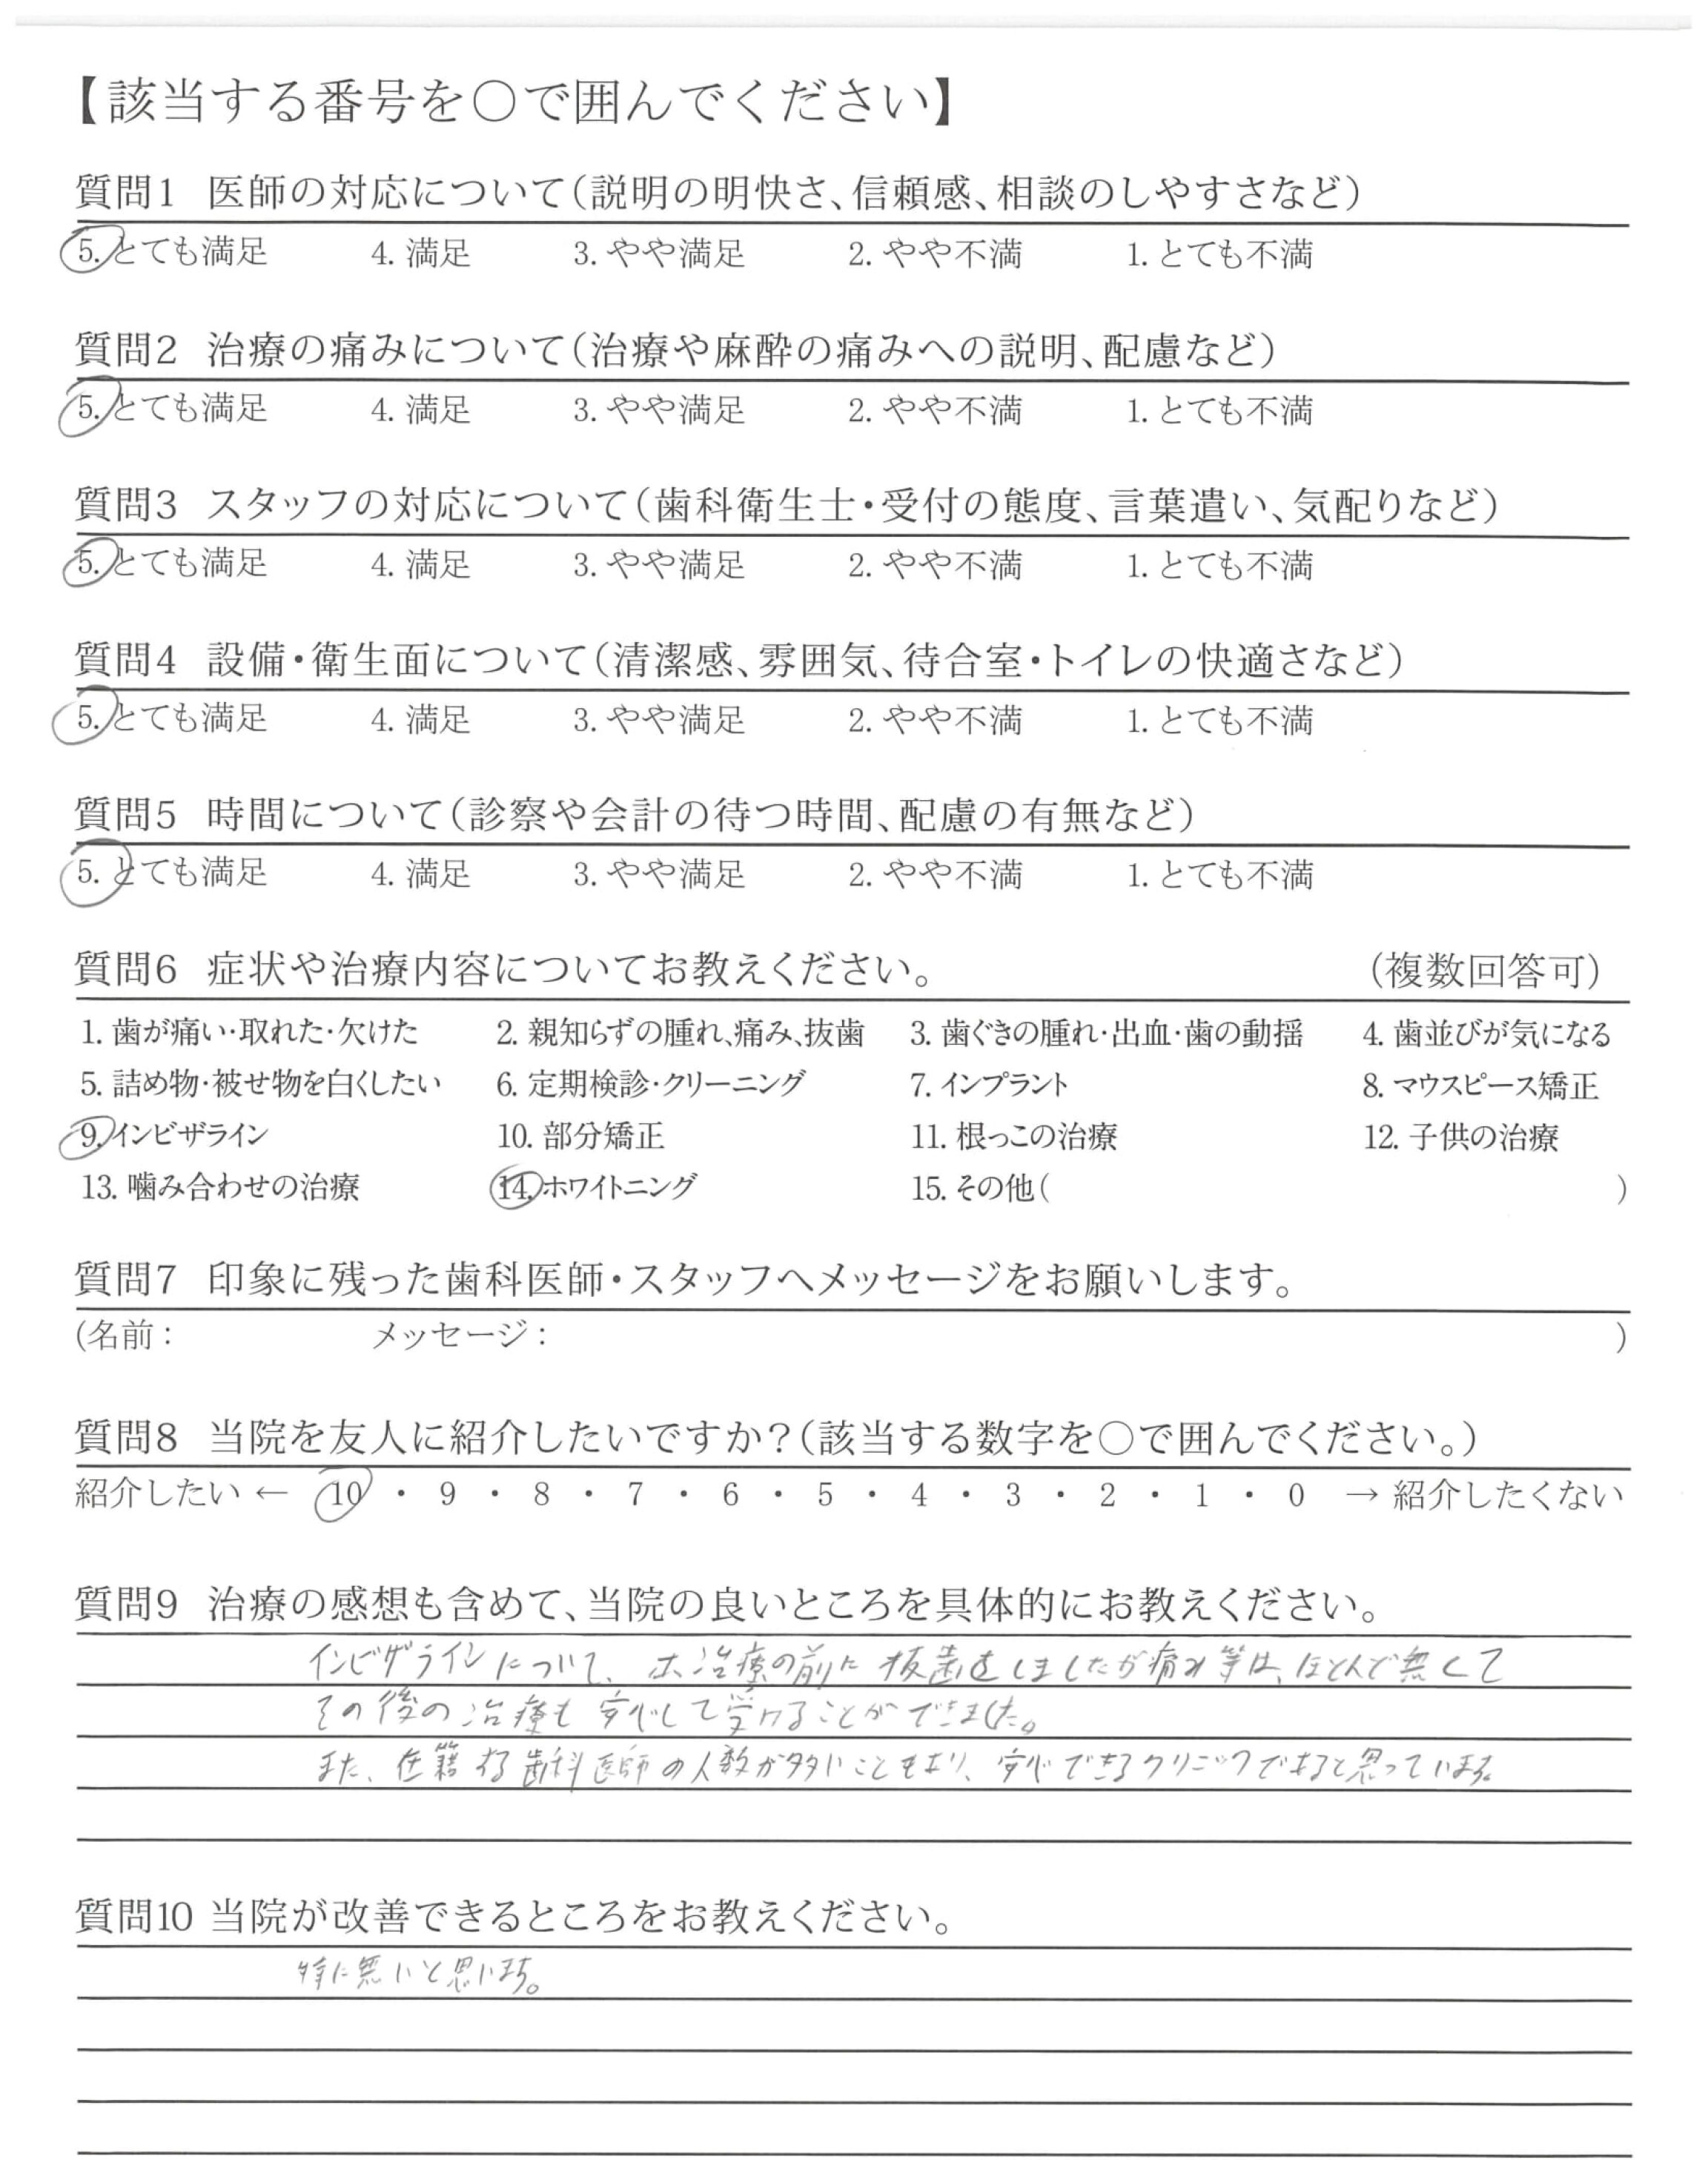 【該当する番号を〇で囲んでください】
質問1 医師の対応について(説明の明快さ、信頼感、相談のしやすさなど)
5. とても満足 4. 満足 3. やや満足 2. やや不満 1. とても不満
質問2 治療の痛みについて(治療や麻酔の痛みへの説明、配慮など)
5. とても満足 4. 満足 3. やや満足 2. やや不満 1. とても不満
質問3 スタッフの対応について(歯科衛生士・受付の態度、言葉遣い、気配りなど)
5. とても満足 4. 満足 3. やや満足 2. やや不満 1. とても不満
質問4 設備・衛生面について(清潔感、雰囲気、待合室・トイレの快適さなど)
5. とても満足 4. 満足 3. やや満足 2. やや不満 1. とても不満
質問5 時間について(診察や会計の待つ時間、配慮の有無など)
5. とても満足 4. 満足 3. やや満足 2. やや不満 1. とても不満
質問6 症状や治療内容についてお教えください。 (複数回答可)
1. 歯が痛い・取れた・欠けた 2. 親知らずの腫れ、痛み、抜歯 3. 歯ぐきの腫れ・出血・歯の動揺 4. 歯並びが気になる
5. 詰め物・被せ物を白くしたい 6. 定期検診・クリーニング 7. インプラント 8. マウスピース矯正
9. インビザライン 10. 部分矯正 11. 根っこの治療 12. 子供の治療
13. 噛み合わせの治療 14. ホワイトニング 15. その他( )
質問7 印象に残った歯科医師・スタッフへメッセージをお願いします。
(名前: メッセージ: )
質問8 当院を友人に紹介したいですか?(該当する数字を〇で囲んでください。)
紹介したい ← 10 ・ 9 ・ 8 ・ 7 ・ 6 ・ 5 ・ 4 ・ 3 ・ 2 ・ 1 ・ 0 → 紹介したくない
質問9 治療の感想も含めて、当院の良いところを具体的にお教えください。
インビザラインについて、本治療の前に抜歯をしましたが痛み等は、ほとんど無くて
その後の治療も安心して受けることができました。
また、在籍する歯科医師の人数が多いこともあり、安心できるクリニックであると思っています。
質問10 当院が改善できるところをお教えください。
特に無いと思います。